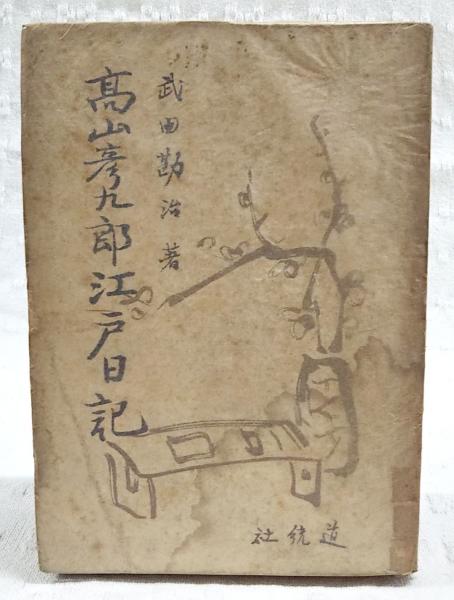 武田勘治著
高山彦九郎江戸日記
道統社